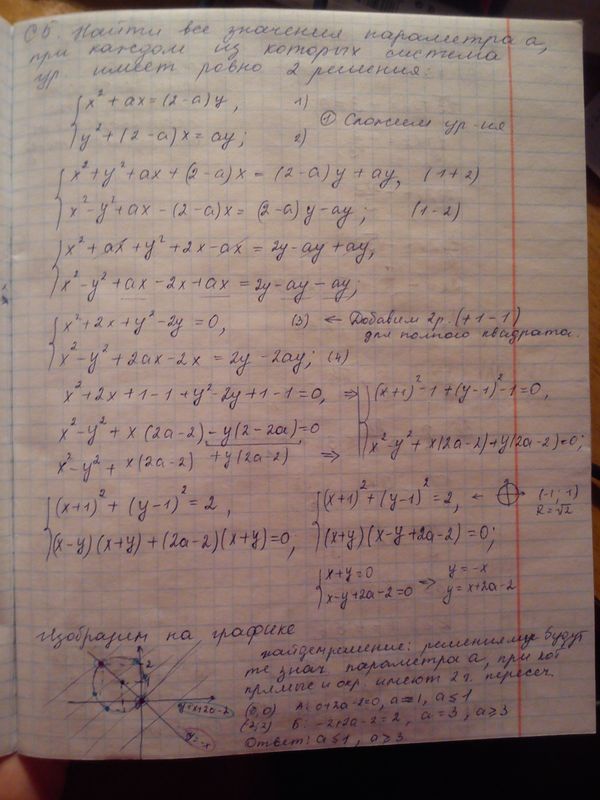 С5. Найти все значения параметра а,
при каждом из которых система
ур имеет ровно 2 решения:
x² + ax = (2-a)y, 1)
y² + (2-a)x = ay; 2)
① Сложим ур-ия
x² + y² + ax + (2-a)x = (2-a)y + ay, (1+2)
x² - y² + ax - (2-a)x = (2-a)y - ay; (1-2)
x² + ax + y² + 2x - ax = 2y - ay + ay,
x² - y² + ax - 2x + ax = 2y - ay - ay;
x² + 2x + y² - 2y = 0, (3) ← Добавим 2р. (+1-1)
для полного квадрата.
x² - y² + 2ax - 2x = 2y - 2ay; (4)
x² + 2x + 1 - 1 + y² - 2y + 1 - 1 = 0, ⇒ (x+1)² - 1 + (y-1)² - 1 = 0,
x² - y² + x(2a-2) - y(2-2a) = 0
x² - y² + x(2a-2) + y(2a-2) ⇒ x² - y² + x(2a-2) + y(2a-2) = 0;
(x+1)² + (y-1)² = 2, (x+1)² + (y-1)² = 2, ← (-1; 1)
R = √2
(x-y)(x+y) + (2a-2)(x+y) = 0, (x+y)(x-y+2a-2) = 0;
x+y = 0 ⇒ y = -x
x-y+2a-2 = 0 y = x+2a-2
Изобразим на графике
2
1
y = x+2a-2
y = -x
решения: решениями будут
те знач. параметра а, при кот
прямые и окр. имеют 2 т. пересеч.
(0; 0) А: 0+2a-2=0, a=1, a≤1
Б: -2+2a-2=2, a=3, a≥3
Ответ: a≤1, a≥3